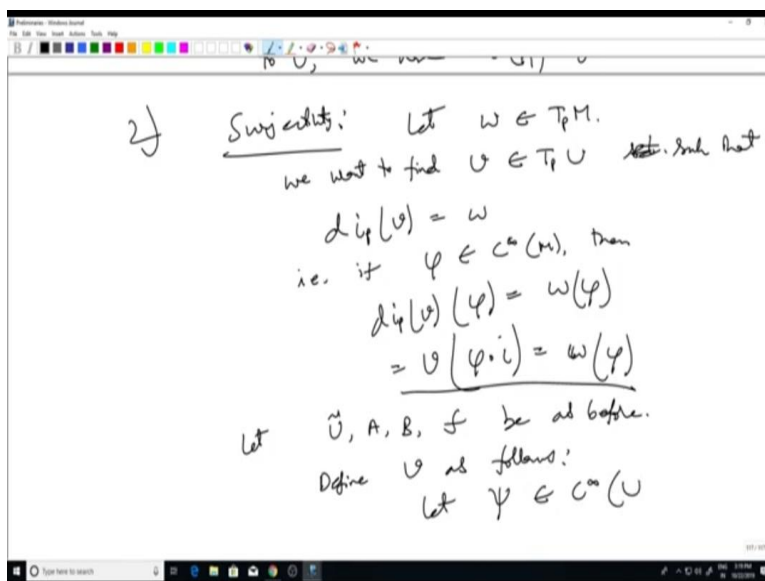 Preliminaries - Windows Journal
File Edit View Insert Actions Tools Help
to U, we
2) Surjectivity: Let w ∈ TₚM.
we want to find v ∈ Tₚ U such that
diₚ(v) = w
i.e. if φ ∈ C^∞(M), then
diₚ(v)(φ) = w(φ)
= v(φ∘i) = w(φ)
Let Ũ, A, B, f be as before.
Define v as follows:
Let ψ ∈ C^∞(U
Type here to search